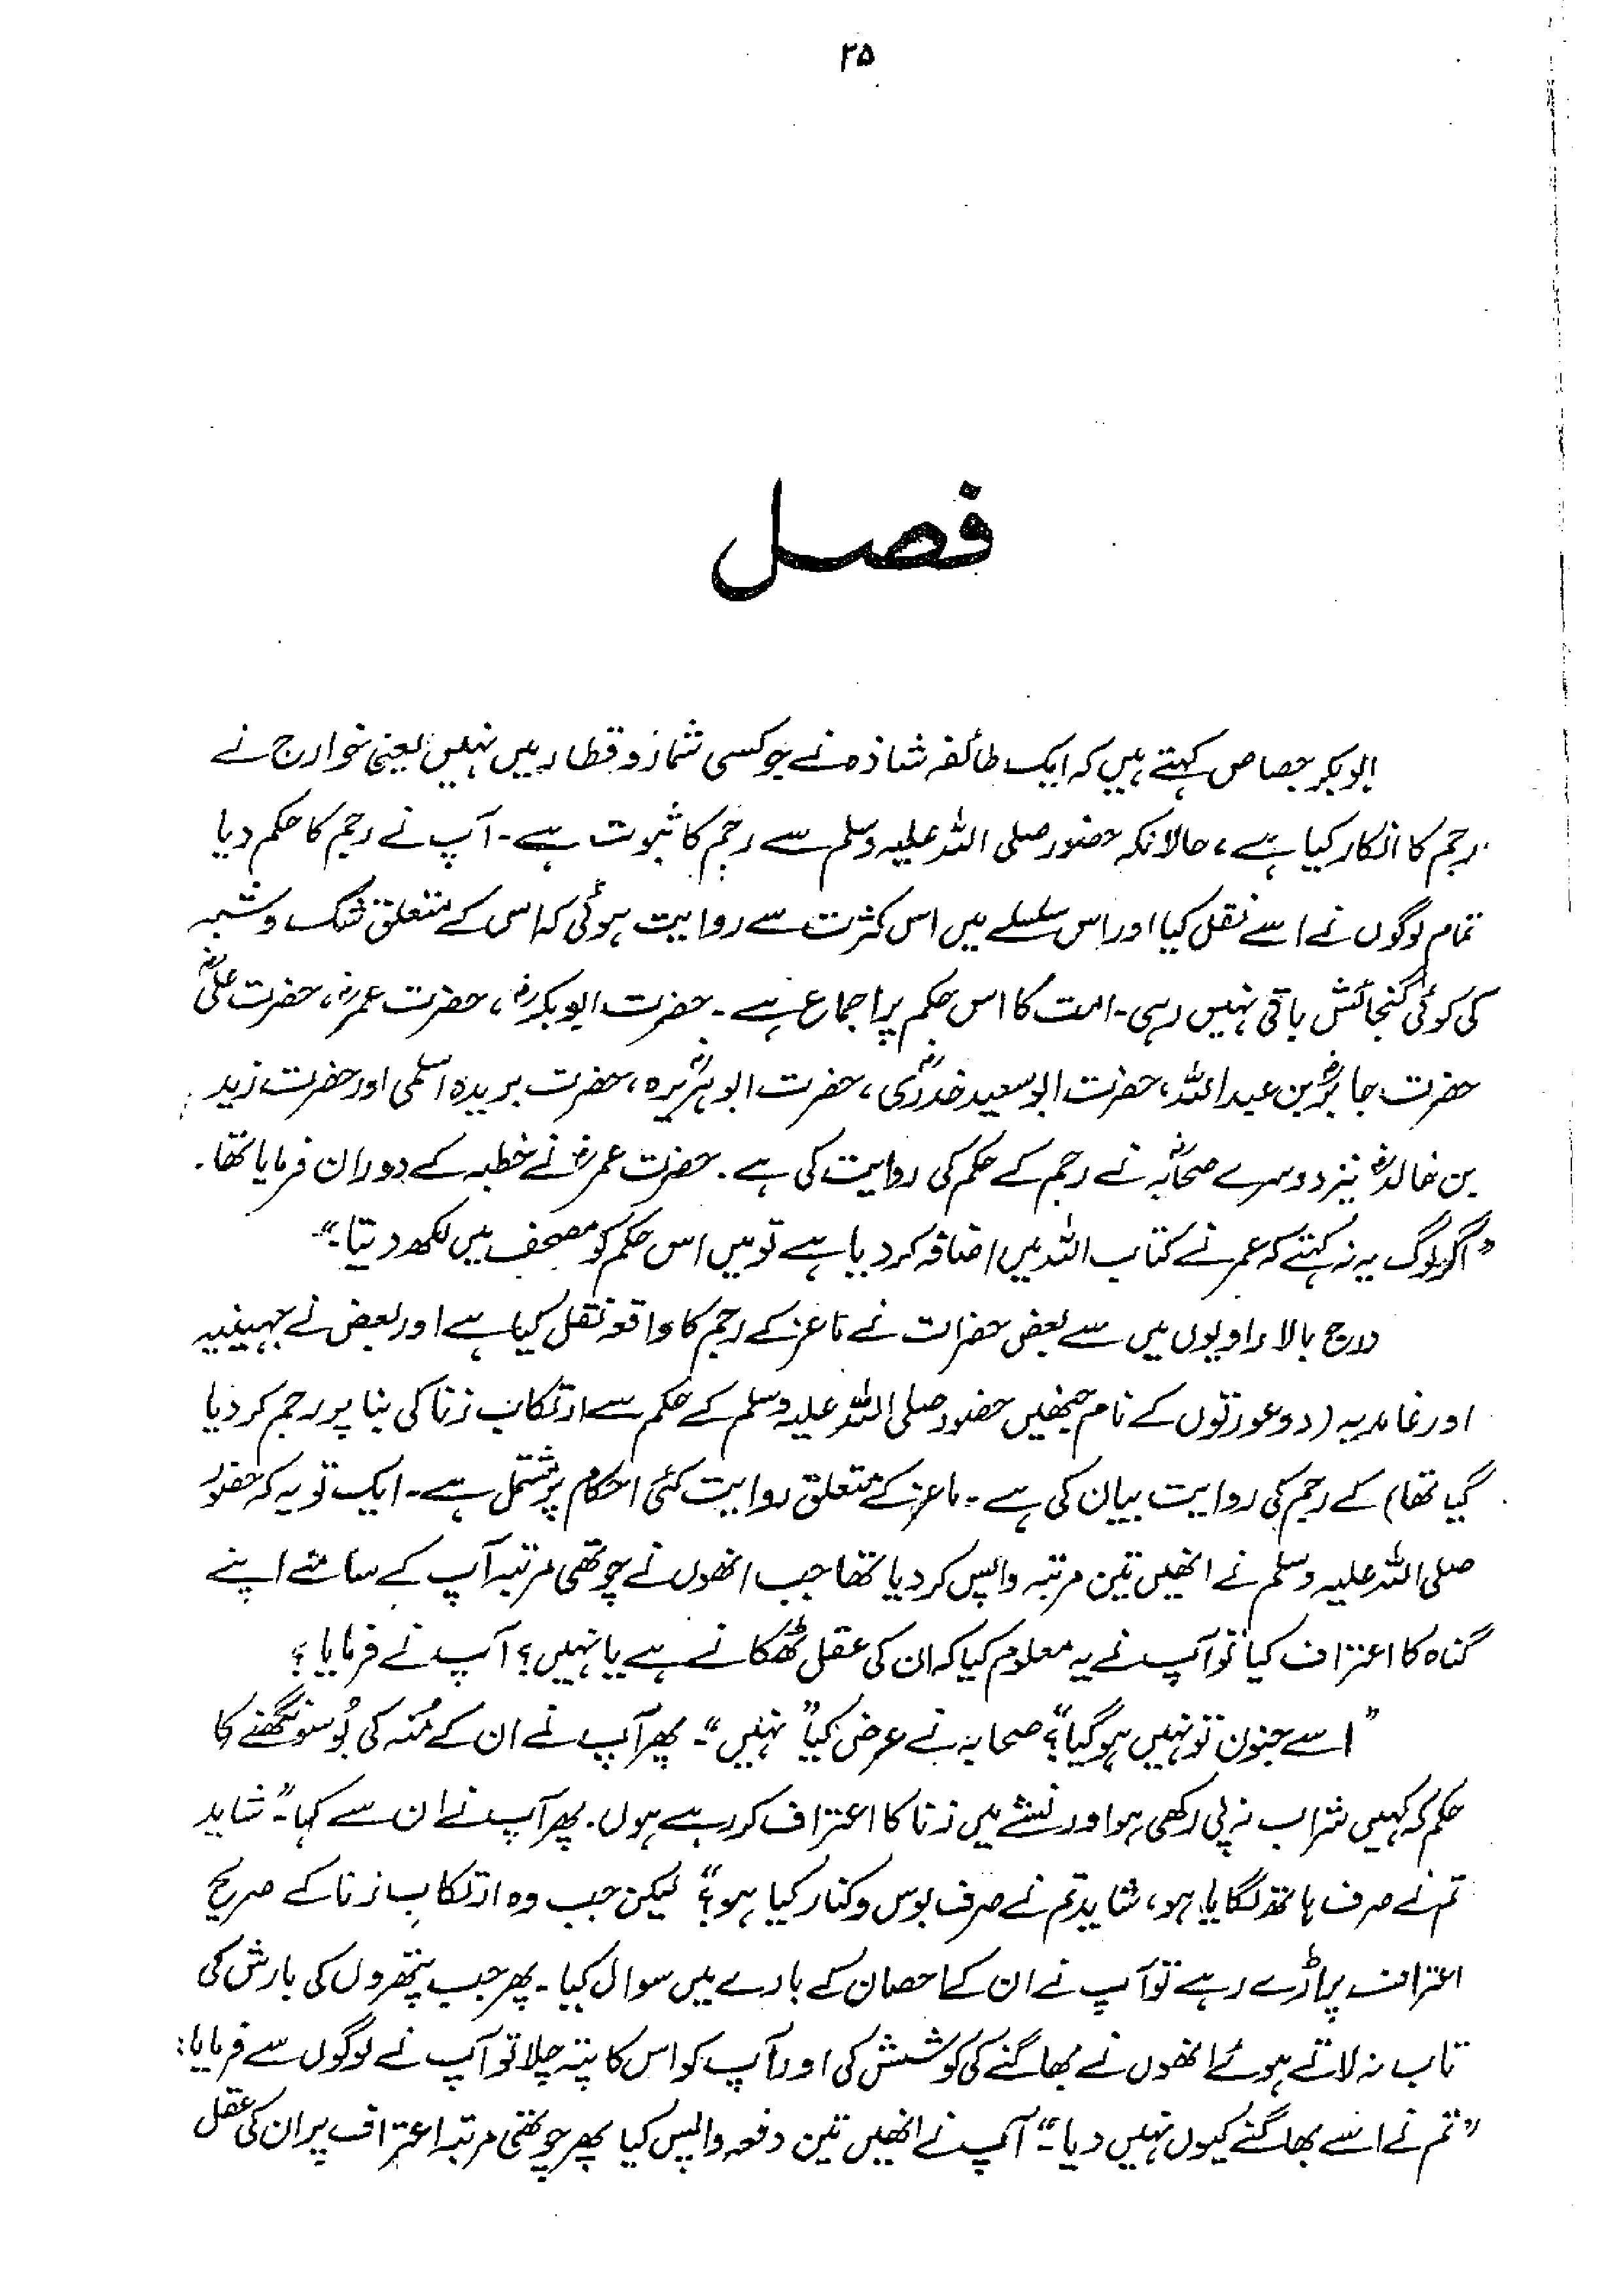 ۲۵
فصل
ابوبکر جصاص کہتے ہیں کہ ایک طائفہ شاذہ نے جو کسی شمار و قطار میں نہیں یعنی خوارج نے
رجم کا انکار کیا ہے، حالانکہ حضور صلی اللہ علیہ وسلم سے رجم کا ثبوت ہے۔ آپ نے رجم کا حکم دیا
تمام لوگوں نے اسے نقل کیا اور اس سلسلے میں اس کثرت سے روایت ہوئی کہ اس کے متعلق شک و شبہ
کی کوئی گنجائش باقی نہیں رہی۔ امت کا اس حکم پر اجماع ہے۔ حضرت ابوبکرؓ، حضرت عمرؓ، حضرت علیؓ
حضرت جابرؓ بن عبداللہ، حضرت ابو سعید خدریؓ، حضرت ابو ہریرہؓ، حضرت بریدہ اسلمی اور حضرت زید
بن خالدؓ نیز دوسرے صحابہؓ نے رجم کے حکم کی روایت کی ہے۔ حضرت عمرؓ نے خطبہ کے دوران فرمایا تھا۔
"اگر لوگ یہ نہ کہتے کہ عمر نے کتاب اللہ میں اضافہ کر دیا ہے تو میں اس حکم کو مصحف میں لکھ دیتا۔"
درج بالا راویوں میں سے بعض حضرات نے ماعز کے رجم کا واقعہ نقل کیا ہے اور بعض نے جہینیہ
اور غامدیہ (دو عورتوں کے نام جنھیں حضور صلی اللہ علیہ وسلم کے حکم سے ارتکاب زنا کی بنا پر رجم کر دیا
گیا تھا) کے رجم کی روایت بیان کی ہے۔ ماعز کے متعلق روایت کئی احکام پر مشتمل ہے۔ ایک تو یہ کہ حضور
صلی اللہ علیہ وسلم نے انھیں تین مرتبہ واپس کر دیا تھا جب انھوں نے چوتھی مرتبہ آپ کے سامنے اپنے
گناہ کا اعتراف کیا تو آپ نے یہ معلوم کیا کہ ان کی عقل ٹھکانے ہے یا نہیں؟ آپ نے فرمایا؟
"اسے جنون تو نہیں ہو گیا؟" صحابہ نے عرض کیا "نہیں"۔ پھر آپ نے ان کے مُنہ کی بُو سونگھنے کا
حکم کہ کہیں شراب نہ پی رکھی ہو اور نشے میں زنا کا اعتراف کر رہے ہوں۔ پھر آپ نے ان سے کہا۔ "شاید
تم نے صرف ہاتھ لگایا ہو، شاید تم نے صرف بوس و کنار کیا ہو؟" لیکن جب وہ ارتکاب زنا کے صریح
اعتراف پر اڑے رہے تو آپ نے ان کے احصان کے بارے میں سوال کیا۔ پھر جب پتھروں کی بارش کی
تاب نہ لاتے ہوئے انھوں نے بھاگنے کی کوشش کی اور آپ کو اس کا پتہ چلا تو آپ نے لوگوں سے فرمایا:
"تم نے اسے بھاگنے کیوں نہیں دیا۔" آپ نے انھیں تین دفعہ واپس کیا پھر چوتھی مرتبہ اعتراف پر ان کی عقل